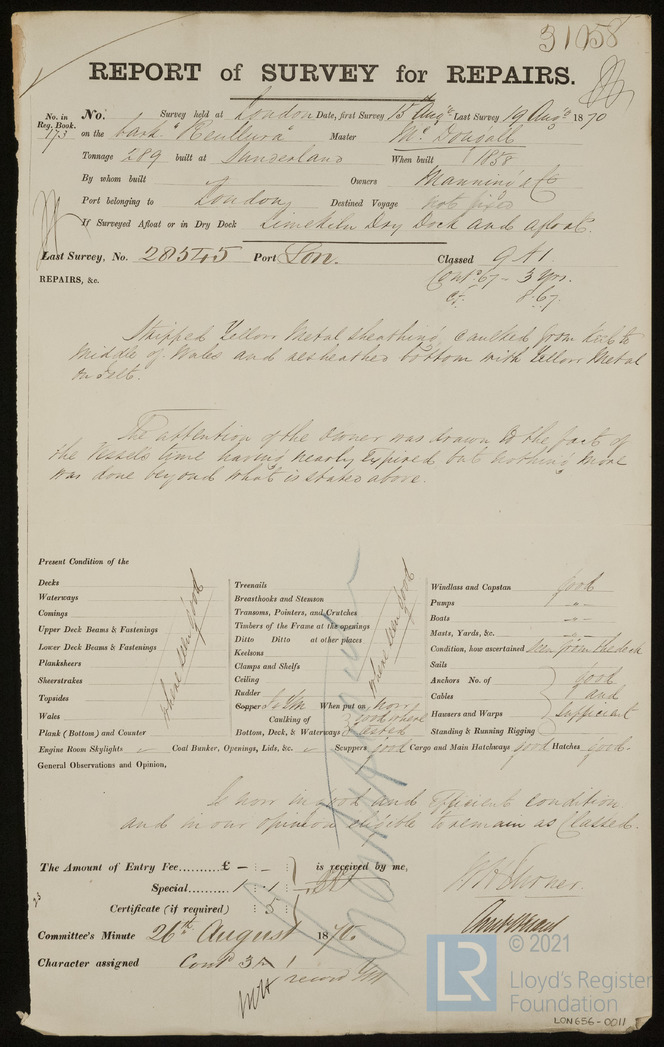 31058
REPORT of SURVEY for REPAIRS.
No. in Reg. Book. No. Survey held at London Date, first Survey 15 Augt Last Survey 19 Augt 1870
173 on the bark "Reullura" Master McDougall
Tonnage 289 built at Sunderland When built 1858
By whom built Owners Manning & Co
Port belonging to London Destined Voyage not fixed
If Surveyed Afloat or in Dry Dock Limekiln Dry Dock and afloat.
Last Survey, No. 28545 Port Lon. Classed 9 A 1.
Contd 67 - 3 Yrs.
REPAIRS, &c. 8.67.
Stripped Yellow Metal sheathing, caulked from keel to
Middle of Wales and resheathed bottom with Yellow Metal
on felt.
The attention of the owner was drawn to the fact of
the Vessels time having nearly Expired but nothing more
was done beyond what is stated above.
Present Condition of the
Decks
Waterways
Comings
Upper Deck Beams & Fastenings
Lower Deck Beams & Fastenings
Planksheers
Sheerstrakes
Topsides
Wales
Plank (Bottom) and Counter
where seen good
Treenails
Breasthooks and Stemson
Transoms, Pointers, and Crutches
Timbers of the Frame at the openings
Ditto Ditto at other places
Keelsons
Clamps and Shelfs
Ceiling
Rudder
where seen good
Copper Y M When put on now
Caulking of good where
Bottom, Deck, & Waterways tested
Windlass and Capstan good
Pumps -"-
Boats -"-
Masts, Yards, &c. -"-
Condition, how ascertained seen from the deck
Sails
Anchors No. of good
Cables and
Hawsers and Warps sufficient
Standing & Running Rigging
Engine Room Skylights Coal Bunker, Openings, Lids, &c. Scuppers good Cargo and Main Hatchways good Hatches good.
General Observations and Opinion,
Is now in good and Efficient condition
and in our opinion eligible to remain as Classed.
The Amount of Entry Fee.......... £ - : - is received by me,
Special.......... 1 : 1
Certificate (if required) : 5
Committee's Minute 26th August 1870.
Character assigned Contd 3 A 1
record
© 2021
LR
Lloyd's Register
Foundation
LON656-0011